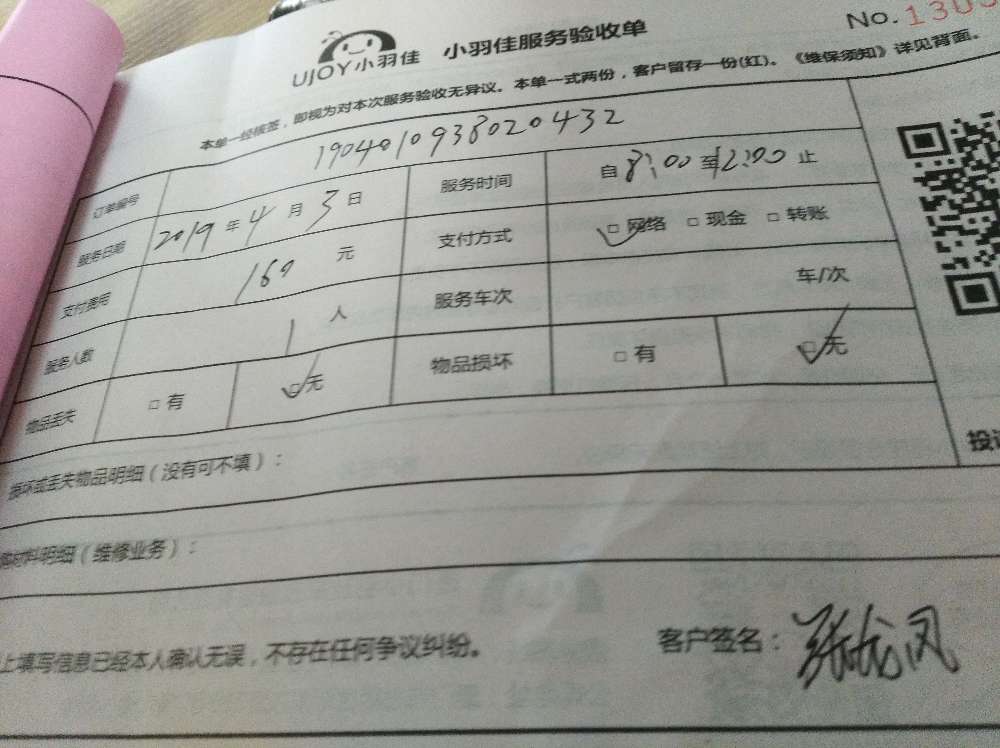 UJOY小羽佳 小羽佳服务验收单
No.1303
本单一经核签,即视为对本次服务验收无异议。本单一式两份,客户留存一份(红)。《维保须知》详见背面。
订单编号 1904010938020432
服务日期 2019年4月3日 服务时间 自8:00至12:00止
支付费用 160元 支付方式 □网络 □现金 □转账
服务人数 1人 服务车次 车/次
物品丢失 □有 □无 物品损坏 □有 □无
损坏或丢失物品明细(没有可不填):
材料明细(维修业务):
上填写信息已经本人确认无误,不存在任何争议纠纷。 客户签名:张龙凤
投诉